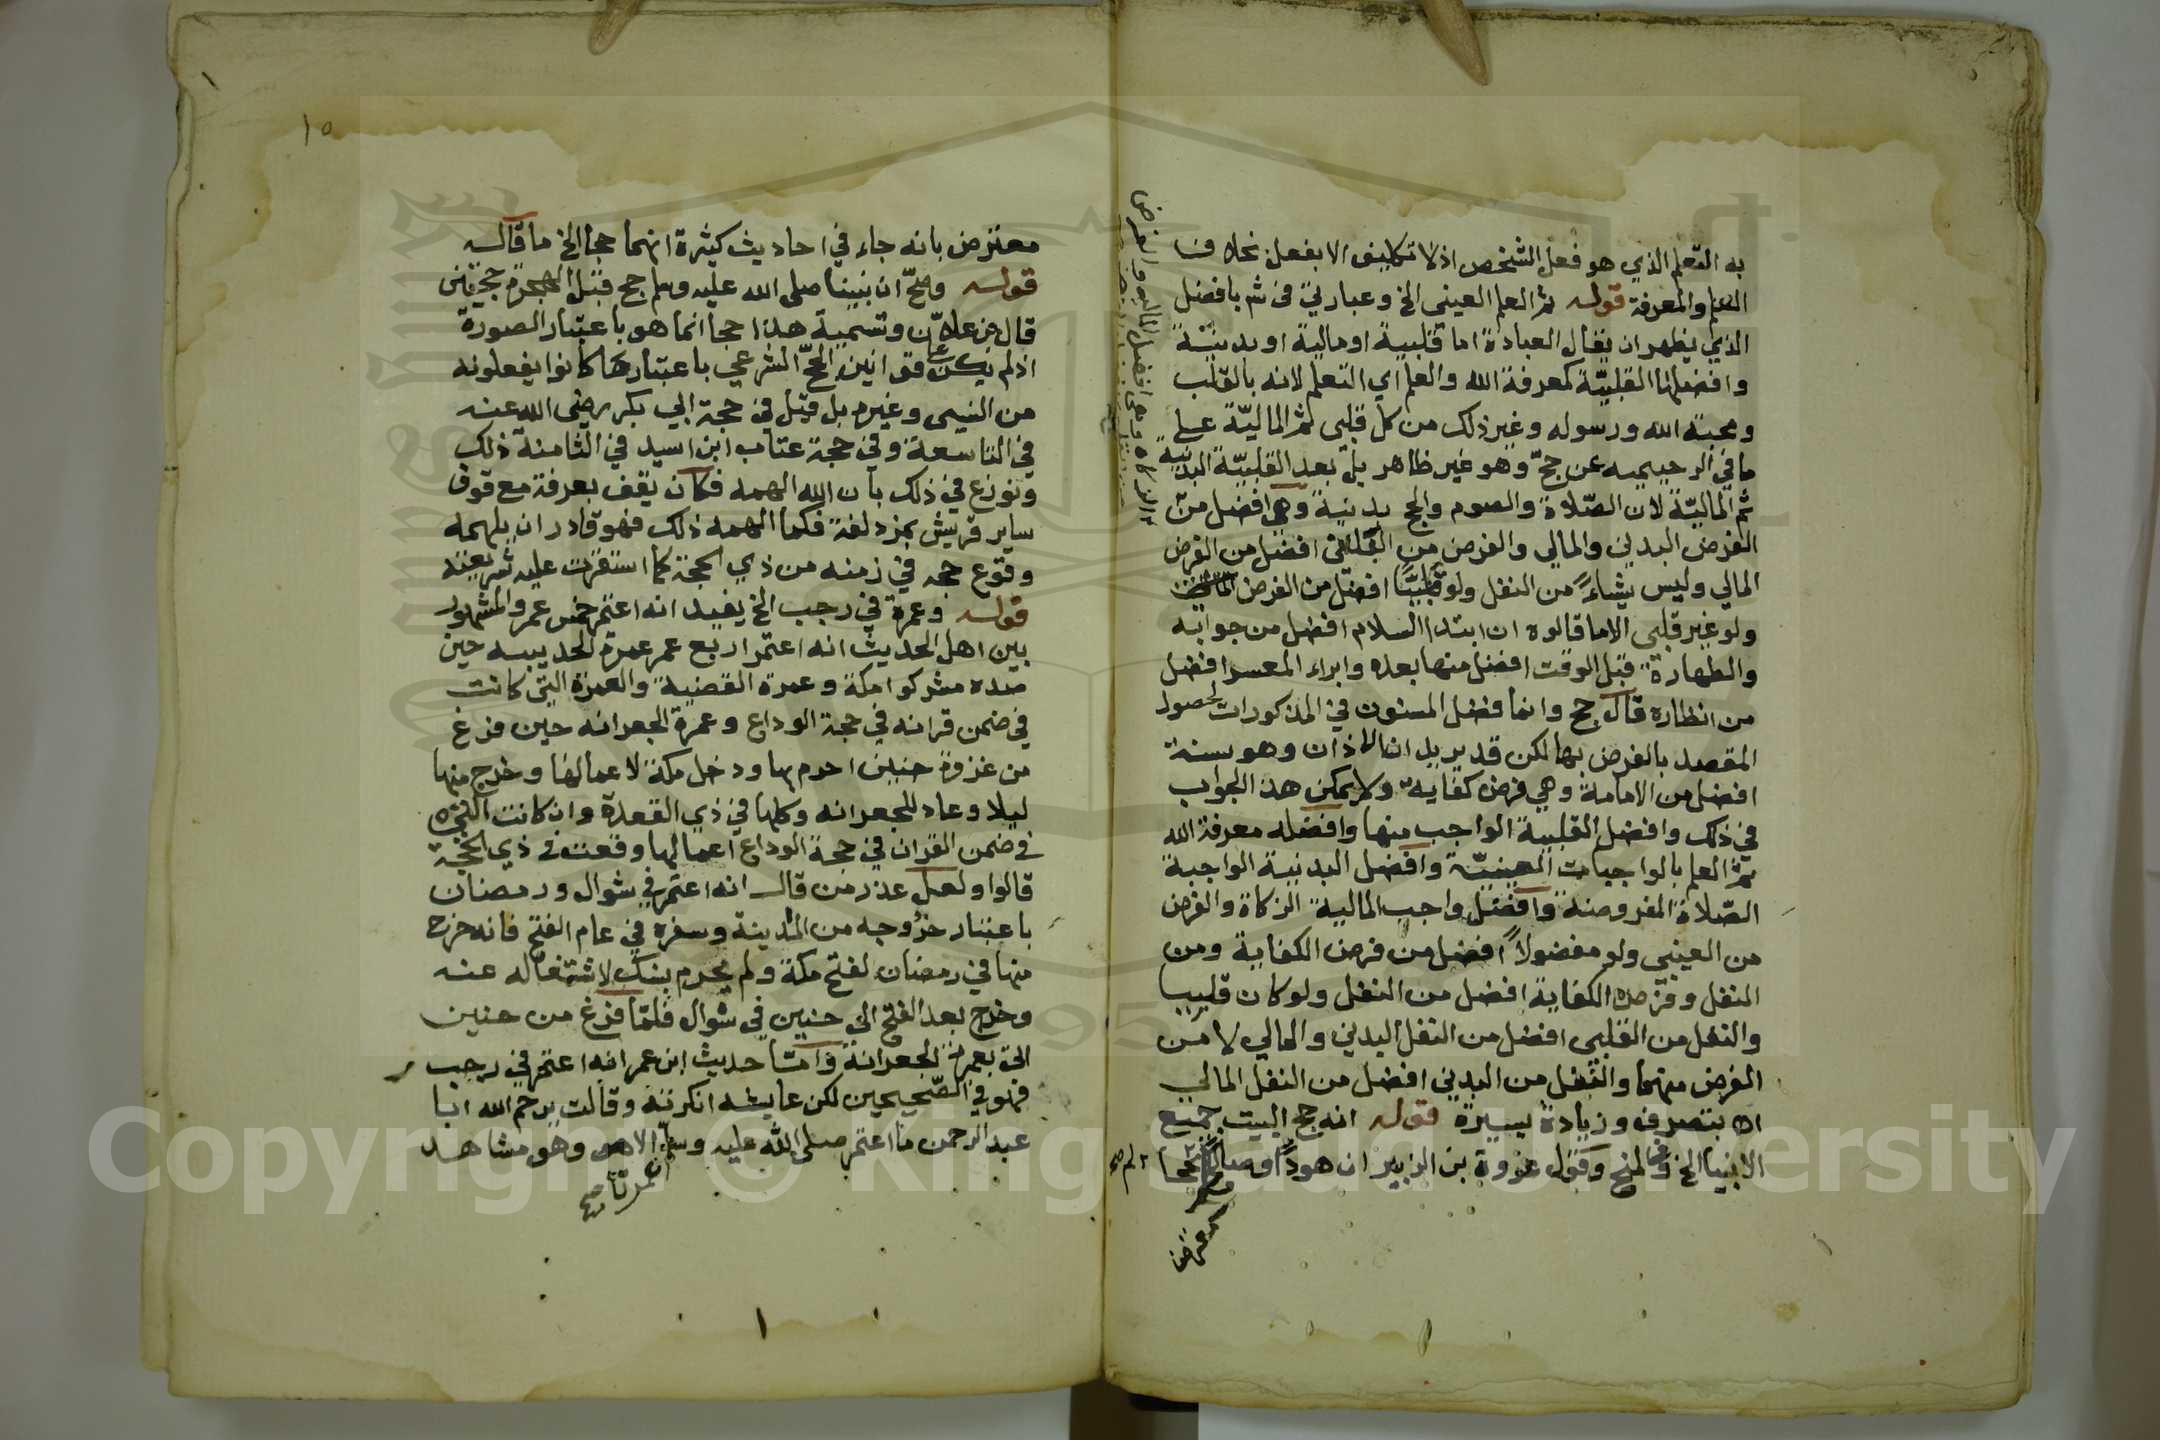 به التعلم الذي هو فعل الشخص اذلا تكليف الا بفعل بخلاف
العلم والمعرفة قوله ثم العلم العيني الخ وعبارتي في شم بافضل
الذي يظهر ان يقال العبادة اما قلبية او مالية او بدنيّة
وافضلها القلبيّة كمعرفة الله والعلم اي التعلم لانه بالقلب
ومحبة الله ورسوله وغير ذلك من كل قلبي ثم الماليّة على
ما في الرحيمية عن حج وهو غير ظاهر بل بعد القلبيّة البدنية
ثم الماليّة لان الصّلاة والصوم والحج بدنية وهي افضل من
الفرض البدني والمالي والفرض من القلبي افضل من الفرض
المالي وليس شياءً من النفل ولو قلبيًّا افضل من الفرض
ولو غير قلبي الا ما قالوه ان ابتدا السلام افضل من جوابه
والطهارة قبل الوقت افضل منها بعده وابراء المعسر افضل
من انظاره قال حج وانما فضل المسنون في المذكورات لحصول
المقصد بالفرض بها لكن قد يريد ان الاذان وهو سنة
افضل من الامامة وهي فرض كفاية ولا يمكن هذا الجواب
في ذلك وافضل القلبية الواجب منها وافضله معرفة الله
ثمّ العلم بالواجبات العينيّة وافضل البدنية الواجبة
الصّلاة المفروضة وافضل واجب المالية الزكاة والفرض
من العيني ولو مفضولاً افضل من فرض الكفاية ومن
النفل وفرض الكفاية افضل من النفل ولو كان قلبيا
والنفل من القلبي افضل من النفل البدني والمالي لا من
الفرض منهما والنفل من البدني افضل من النفل المالي
اه بتصرف وزيادة يسيرة قوله انه حج البيت جميع
الانبيا الخ وفي المنح وقول عروة بن الزبير ان هودًا وصالحًا
لم يحجا
معترض
١٥
معترض بانه جاء في احاديث كثيرة انهما حجا الخ ما قاله
قوله وصحّ ان نبينا صلى الله عليه وسلم حج قبل الهجرة حجتين
قال بن علاّن وتسمية هذا حجا انما هو باعتبار الصورة
اذ لم يكن على قوانين الحجّ الشرعي باعتبار ما كانوا يفعلونه
من النسي وغيره بل قيل في حجة ابي بكر رضي الله عنه
في التاسعة وفي حجة عتاب ابن اسيد في الثامنة ذلك
ونوزع في ذلك بان الله الهمه فكان يقف بعرفة مع وقوف
ساير قريش بمزدلفة فكما الهمه ذلك فهو قادر ان يلهمه
وقوع حجه في زمنه من ذي الحجة كما استقرت عليه شريعته
قوله وعمرة في رجب الخ يفيد انه اعتمر خمس عمر والمشهور
بين اهل الحديث انه اعتمر اربع عمر عمرة الحديبيه حين
صده مشركوا مكة وعمرة القضية والعمرة التي كانت
في ضمن قرانه في حجة الوداع وعمرة الجعرانه حين فرغ
من غزوة حنين احرم بها ودخل مكة لاعمالها وخرج منها
ليلا وعاد للجعرانه وكلها في ذي القعدة وان كانت التي
في ضمن القران في حجة الوداع اعمالها وقعت في ذي الحجّة
قالوا ولعل عذر من قال انه اعتمر في شوال ورمضان
باعتبار خروجه من المدينة وسفره في عام الفتح فانه خرج
منها في رمضان لفتح مكة ولم يحرم بنسك لاشتغاله عنه
وخرج بعد الفتح الي حنين في شوال فلمّا فرغ من حنين
اتى بعمرة الجعرانة وامّا حديث ابن عمر انه اعتمر في رجب
فهو في الصّحيحين لكن عايشه انكرته وقالت يرحم الله ابا
عبد الرحمن ما اعتمر صلى الله عليه وسلّم الا وهو مشاهد